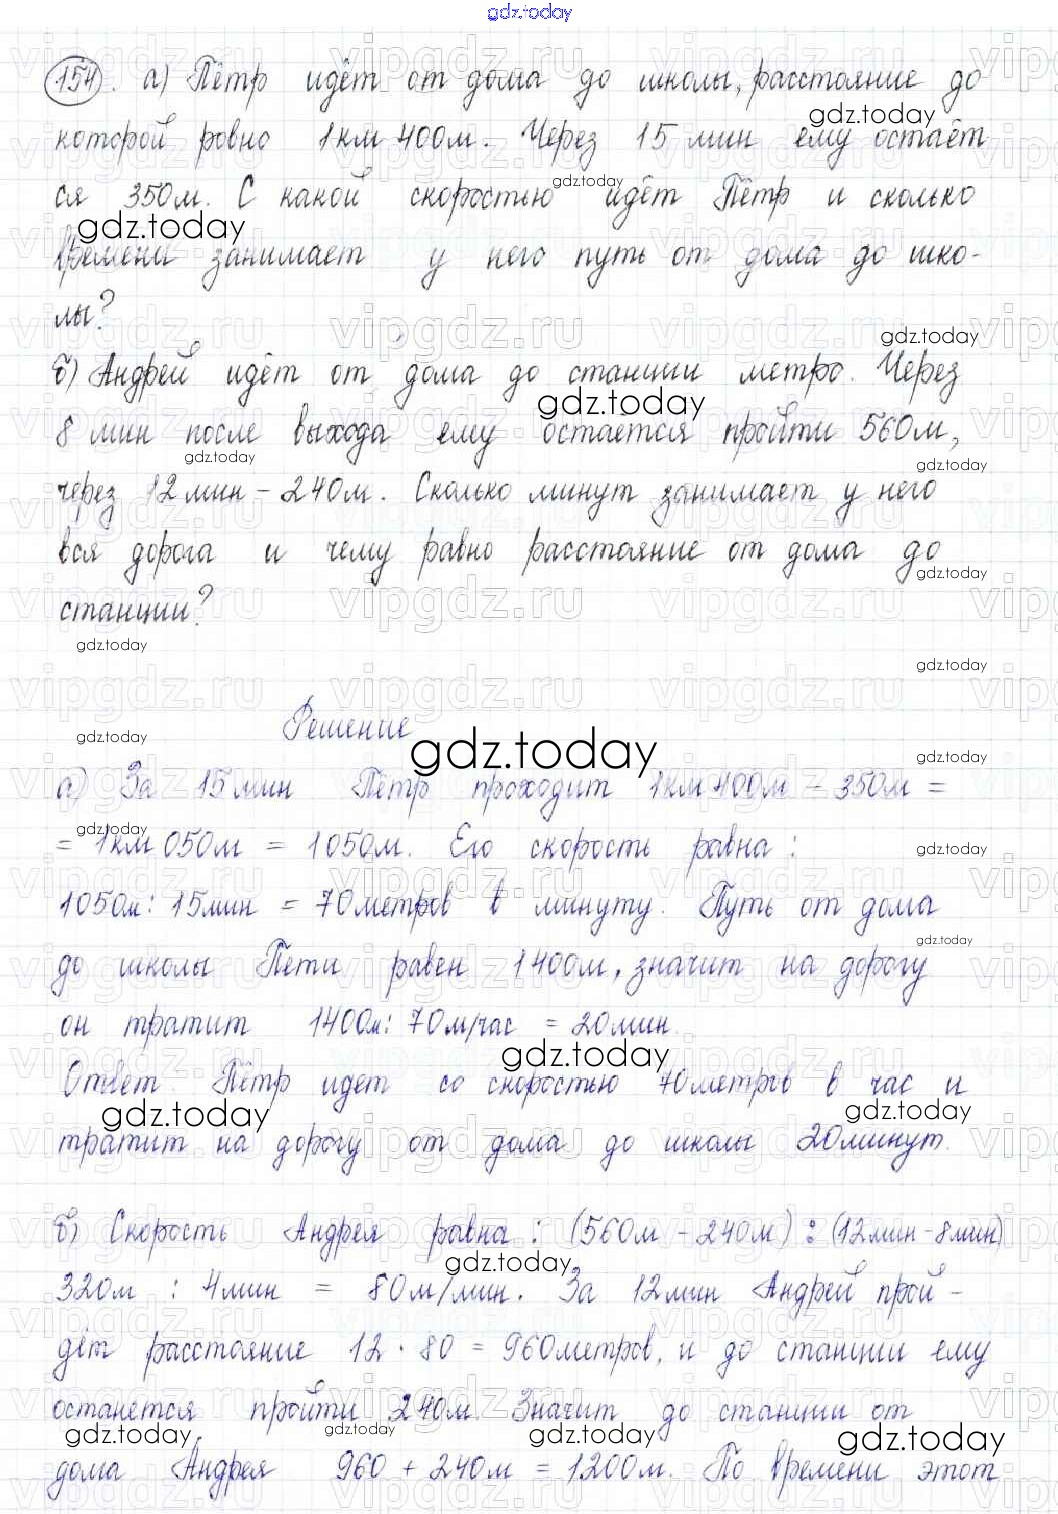 gdz.today
154. а) Пётр идёт от дома до школы, расстояние до
которой ровно 1км 400м. Через 15 мин ему остаёт
ся 350м. С какой скоростью идёт Пётр и сколько
времени занимает у него путь от дома до шко-
лы?
б) Андрей идёт от дома до станции метро. Через
8 мин после выхода ему остаётся пройти 560м,
через 12 мин - 240м. Сколько минут занимает у него
вся дорога и чему равно расстояние от дома до
станции?
Решение
а) За 15 мин Пётр проходит 1км 400м - 350м =
= 1км 050м = 1050м. Его скорость равна:
1050м : 15мин = 70 метров в минуту. Путь от дома
до школы Пети равен 1400м, значит на дорогу
он тратит 1400м : 70м/час = 20мин.
Ответ. Пётр идет со скоростью 70 метров в час и
тратит на дорогу от дома до школы 20 минут.
б) Скорость Андрея равна: (560м - 240м) : (12мин - 8мин)
320м : 4мин = 80м/мин. За 12мин Андрей прой-
дёт расстояние 12 · 80 = 960 метров, и до станции ему
останется пройти 240м. Значит до станции от
дома Андрея 960 + 240м = 1200м. По времени этот